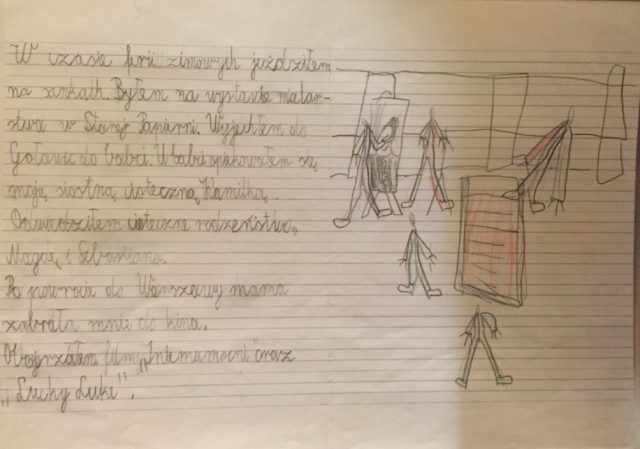 W czasie ferii zimowych jeździłem
na sankach. Byłem na wystawie malar-
stwa w Starej Papierni. Wyjechałem do
do babci. U babci opiekowałem się
moją siostrą cioteczną Kamilką.
Odwiedziłem cioteczne rodzeństwo,
Magdę i Sebastiana.
Po powrocie do Warszawy mama
zabrała mnie do kina.
Obejrzałem film „Iniemamocni" oraz
„Lucky Luke".